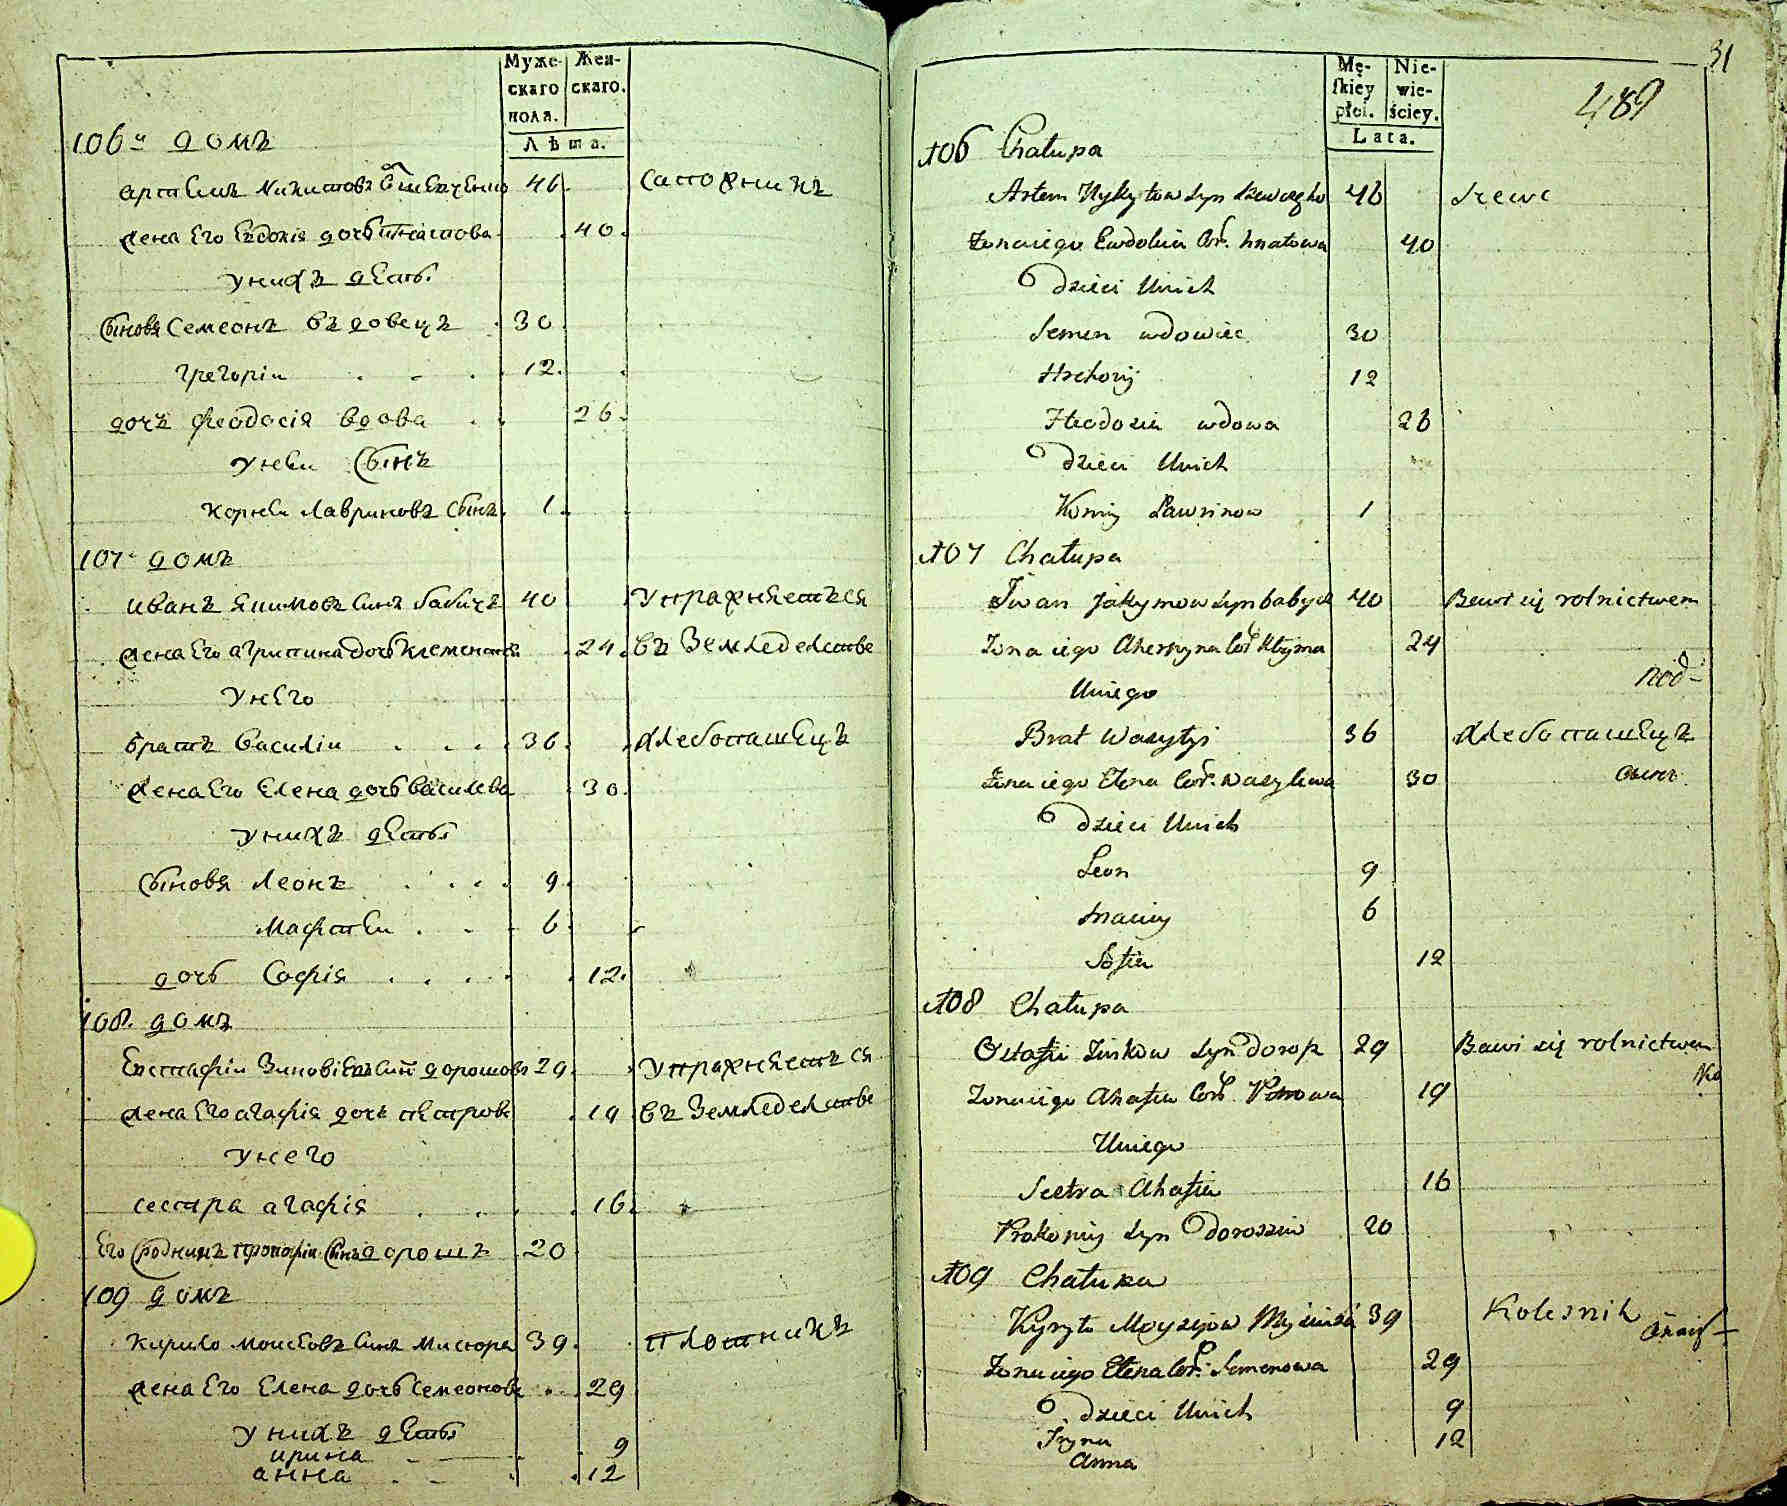 Муже-
скаго
пола.
Жен-
скаго.
Лѣта.
106й домъ
Артемъ Никитовъ Шевченко 46. сапожникъ
жена Его Евдокія дочь Игнатова. 40.
у нихъ дѣти
сыновя Семеонъ въдовецъ 30.
Григоріи 12.
дочъ Феодосія вдова 26.
у неи сынъ
Корнѣи Лавриновъ сынъ. 1.
107й домъ
Иванъ Якимовъ синъ Бабичъ 40 упражняетъся
жена Его Агрипина дочь Клементія 24. въ Земледелстве
у него
братъ Василіи 36. хлебопашецъ
жена Его Елена дочь Василева 30.
у нихъ дѣти
сыновя Леонъ 9.
Мафтѣи 6.
дочь Софія 12.
108. домъ
Евстафіи Зиновіевъ син Дорошовъ 29. упражняетъ ся
жена Его Агафія дочъ Петрова 19 въ Земледелстве
у него
сестра Агафія 16.
Его сродникъ Прокофіи сынъ Дорошъ 20
109 домъ
Кирило Моисеовъ синъ Мисюра 39. плотникъ
жена Его Елена дочь Семеонова 29
у нихъ дѣти
Ирина 9
Анна 12
31
489
Mę-
ſkiey
płci.
Nie-
wie-
ściey.
Lata.
106 Chałupa
Artem Nykytow syn 46 Szewc
Żona iego Ewdokia Cór. Hnatowa 40
Dzieci Unich
Semen wdowiec 30
Hrehory 12
Fteodosia wdowa 26
Dzieci Unich
Korniy Lawrinow 1
107 Chałupa
Iwan Jakymow syn Babycz 40 Bawi się rolnictwem
Żona iego Aherpyna Cór Klyma 24
Uniego
Brat Wasylyi 36 хлебопашецъ
Żona iego Elena Cór. Wasylewa 30
Dzieci Unich
Leon 9
Maciey 6
Sofia 12
108 Chałupa
Ostafii Zinkow syn Dorosz 29 Bawi się rolnictwem
Żona iego Ahafia Cór. Petrowa 19
Uniego
Siestra Ahafia 16
Prokopiy syn Doroszów 20
109 Chałupa
Kyryło Moyseiow 39 Kołesnik
Żona iego Elena Cór. Semenowa 29
Dzieci Unich
Iryna 9
Anna 12